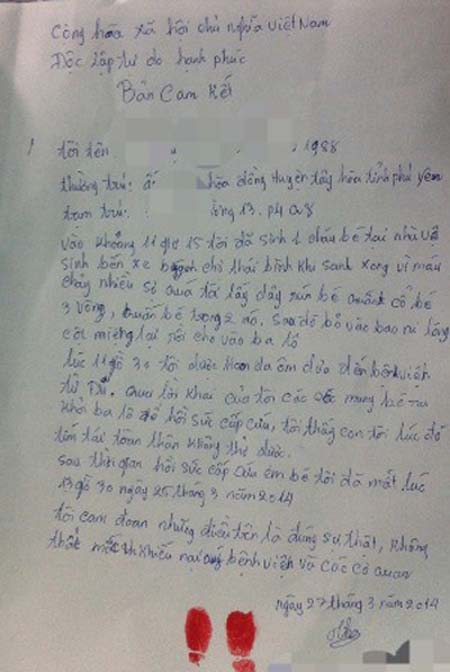 Công hóa xã hội chủ nghĩa việt Nam
Độc lập tự do hạnh phúc
Bản Cam Kết
tôi tên 1988
thường trú: ấ hòa đồng Huyện tây hòa tỉnh phú yên
tạm trú: ông 13. p4 q8
vào khoảng 11 giờ 15 tôi đã sinh 1 cháu bé tại nhà vệ
sinh bến xe chờ thái bình khi sanh xong vì máu
chảy nhiều sợ quá tôi lấy dây rún bé quấn cổ bé
3 vòng, quấn bé trong 2 áo. Sau đó bỏ vào bao ni lông
cột miệng lại rồi cho vào ba lô
lúc 11 giờ 30 tôi được đưa đến bệnh viện
từ Dũ. Qua lời khai của tôi các mang bé ra
khỏi ba lô để hồi sức cấp cứu, tôi thấy con tôi lúc đó
tím tái toàn thân không thở được.
sau thời gian hồi sức cấp cứu em bé tôi đã mất lúc
13 giờ 30 ngày 25 tháng 3 năm 2014
tôi cam đoan những điều trên là đúng sự thật, không
thắc mắc khiếu nại bệnh viện và các cơ quan
ngày 27 tháng 3 năm 2014